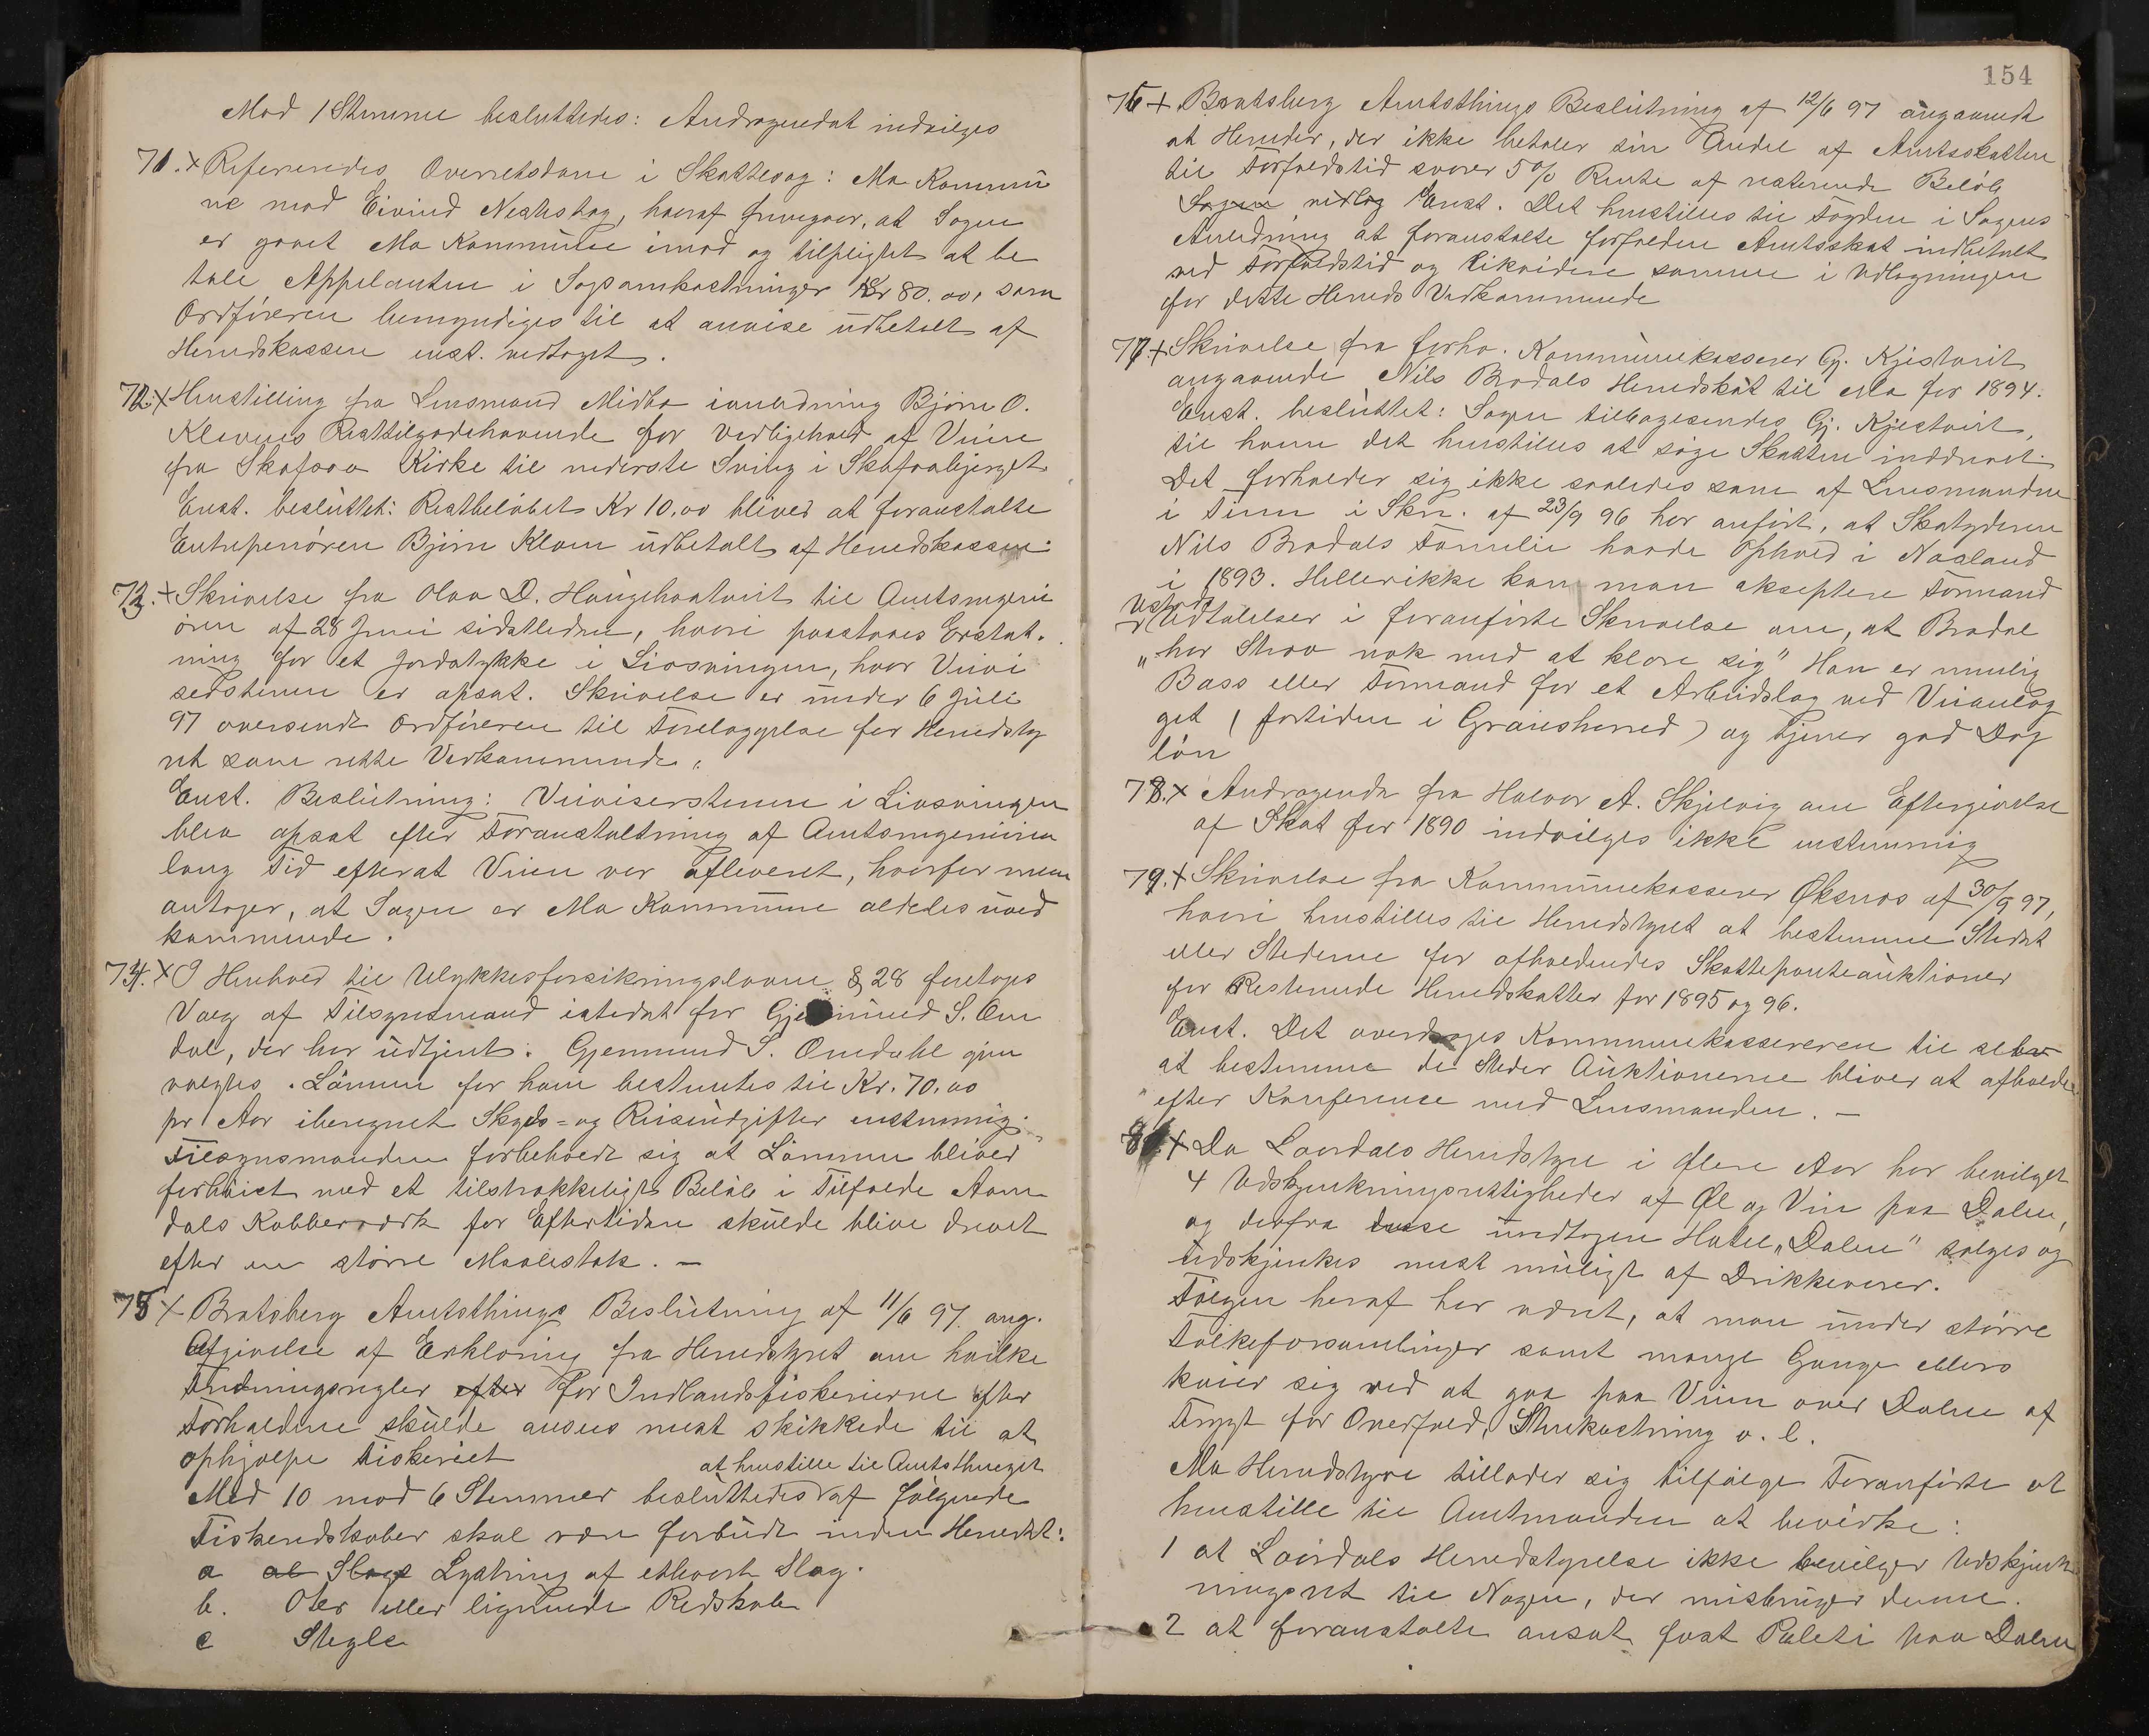 Mod 1 Stemme besluttedes: Andragendet indvilges
71.x Refereredes Overretsdom i Skattesag: Mo Kommu
ne mod Eivind Nesthog, hvoraf fremgaar, at Sagen
er gaaet Mo Kommune imod og tilpligtet at be
tale Appelanten i Sagsomkostninger Kr 80.00, som
Ordføreren bemyndiges til at anvise udbetalt af
Herredskassen enst. vedtaget.
72.x Henstilling fra Lensmand Midbø i anledning Bjørn O.
Klevens Resttilgodehavende for Vedligehold af Veien
fra Skafsaa Kirke til nederste Sving i Skafsaabjerget
Enst. besluttet: Restbeløbet Kr 10,00 bliver at foranstalte
Entreprenøren Bjørn Klom udbetalt af Herredskassen.
73.+ Skrivelse fra Olav D. Haugehaatveit til Amtsingeni
øren af 28 Juni sidstleden, hvori paastaaes Erstat-
ning for et Jordstykke i Liosvingen, hvor Veivi
serstenen er opsat. Skrivelse er under 6 Juli
97 oversendt Ordføreren til Forelæggelse for Herredsty
ret som rette Vedkommende.
Enst. Beslutning: Veiviserstenen i Liosvingen
blev opsat efter Foranstaltning af Amtsingeniøren
lang Tid efterat Veien var afleveret, hvorfor man
antager, at Sagen er Mo Kommune aldeles uved
kommende.
74.x I Henhold til Ulykkesforsikringsloven § 28 foretoges
Valg af Tilsynsmand istedet for Gjermund S. Om
dal, der har udtjent. Gjermund S. Omdahl gjen
valgtes. Lønnen for ham bestemtes til Kr. 70,00
pr Aar iberegnet Skyds- og Reiseudgifter enstemmig.
Tilsynsmanden forbeholdt sig at Lønnen bliver
forhøiet med et tilstrækkeligt Beløb i Tilfælde Aam
dals Kobberværk for Eftertiden skulde blive drevet
efter en større Maalestok. —
75 x Bratsberg Amtsthings Beslutning af 11/6 97. ang.
Afgivelse af Erklæring fra Herredstyret om hvilke
Fredningsregler efter for Indlandsfiskerierne efter
Forholdene skulde ansees mest skikkede til at
ophjælpe Fiskeriet
at henstille til Amtsthinget
Med 10 mod 6 Stemmer besluttedes at følgende
Fiskeredskaber skal være forbudt inden Herredet:
a al Slags Lystring af ethvert Slag.
b. Oter eller lignende Redskab
c Stegle
154
76 + Bratsberg Amtsthings Beslutning af 12/6 97 angaaende
at Herreder, der ikke betaler sin Andel af Amtsskatten
til Forfaldstid svarer 5% Rente af resterende Beløb
Sagen vedlog Enst. Det henstilles til Fogden i Sagens
Anledning at foranstalte forfalden Amtsskat indbetalt
ved Forfaldstid og likvidere samme i Udlægningen
for dette Herreds Vedkommende
77.+ Skrivelse fra forhv. Kommunekasserer Gj. Kjistveit
angaaende Nils Brodals Herredskat til Mo for 1894.
Enst. besluttet: Sagen tilbagesendes Gj. Kjistveit,
til hvem det henstilles at søge Skatten inddrevet.
Det forholder sig ikke saaledes som af Lensmanden
i Tinn i Skr. af 23/9 96 har anført, at Skatyderen
Nils Brodals Familie havde Ophold i Nesland
i 1893. Heller ikke kan man akseptere Formand
Udtalelser i foranførte Skrivelse om, at Brodal
„har Strev nok med at klare sig" Han er nemlig
Bass eller Formand for et Arbeidslag ved Veianlæg
get (fortiden i Gransherred) og tjener god Dag
løn
78.x Andragende fra Halvor A. Skjelvig om Eftergivelse
af Skat for 1890 indvilges ikke enstemmig
79.+ Skrivelse fra Kommunekasserer Øksnes af 30/9 97,
hvori henstilles til Herredstyret at bestemme Stedet
eller Stederne for afholdendes Skattepanteauktioner
for Resterende Herredskatter for 1895 og 96.
Enst. Det overdrages Kommunekassereren til selv
at bestemme de Steder Auktionerne bliver at afholde
efter Konference med Lensmanden. —
80.+ Da Laardals Herredstyre i flere Aar har bevilget
4 Udskjenkningsrettigheder af Øl og Vin paa Dalen,
og derfra disse undtagen Hotel „Dalen" sælges og
udskjenkes mest muligt af Drikkevarer.
Følgen heraf har været, at man under større
Folkeforsamlinger samt mange Gange ellers
kvier sig ved at gaa paa Veien over Dalen af
Frygt for Overfald, Stenkastning o. l.
Mo Herredstyre tillader sig tilfølge Foranførte at
henstille til Amtmanden at bevirke:
1 at Laardals Herredstyrelse ikke bevilger Udskjenk
ningsret til Nogen, der misbruger denne.
2 at foranstalte ansat fast Politi paa Dalen